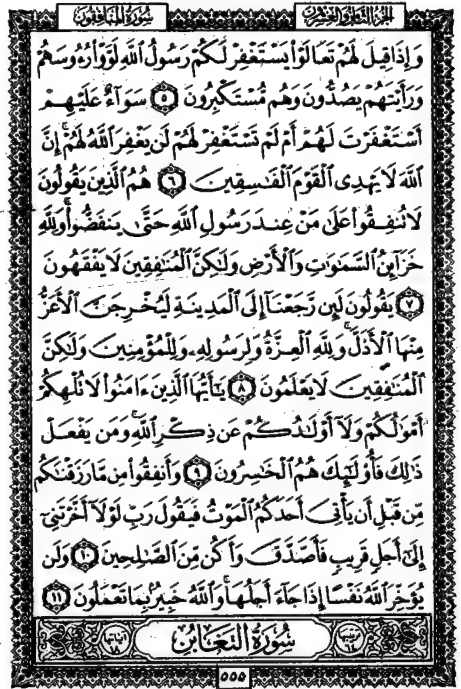 سُورَةُ المُنَافِقُونَ
الجُزْءُ الثَّامِنُ وَالْعِشْرُونَ
وَإِذَا قِيلَ لَهُمْ تَعَالَوْا۟ يَسْتَغْفِرْ لَكُمْ رَسُولُ ٱللَّهِ لَوَّوْا۟ رُءُوسَهُمْ
وَرَأَيْتَهُمْ يَصُدُّونَ وَهُم مُّسْتَكْبِرُونَ ٥ سَوَآءٌ عَلَيْهِمْ
أَسْتَغْفَرْتَ لَهُمْ أَمْ لَمْ تَسْتَغْفِرْ لَهُمْ لَن يَغْفِرَ ٱللَّهُ لَهُمْ ۚ إِنَّ
ٱللَّهَ لَا يَهْدِى ٱلْقَوْمَ ٱلْفَـٰسِقِينَ ٦ هُمُ ٱلَّذِينَ يَقُولُونَ
لَا تُنفِقُوا۟ عَلَىٰ مَنْ عِندَ رَسُولِ ٱللَّهِ حَتَّىٰ يَنفَضُّوا۟ ۗ وَلِلَّهِ
خَزَآئِنُ ٱلسَّمَـٰوَٰتِ وَٱلْأَرْضِ وَلَـٰكِنَّ ٱلْمُنَـٰفِقِينَ لَا يَفْقَهُونَ
٧ يَقُولُونَ لَئِن رَّجَعْنَآ إِلَى ٱلْمَدِينَةِ لَيُخْرِجَنَّ ٱلْأَعَزُّ
مِنْهَا ٱلْأَذَلَّ ۚ وَلِلَّهِ ٱلْعِزَّةُ وَلِرَسُولِهِۦ وَلِلْمُؤْمِنِينَ وَلَـٰكِنَّ
ٱلْمُنَـٰفِقِينَ لَا يَعْلَمُونَ ٨ يَـٰٓأَيُّهَا ٱلَّذِينَ ءَامَنُوا۟ لَا تُلْهِكُمْ
أَمْوَٰلُكُمْ وَلَآ أَوْلَـٰدُكُمْ عَن ذِكْرِ ٱللَّهِ ۚ وَمَن يَفْعَلْ
ذَٰلِكَ فَأُو۟لَـٰٓئِكَ هُمُ ٱلْخَـٰسِرُونَ ٩ وَأَنفِقُوا۟ مِن مَّا رَزَقْنَـٰكُم
مِّن قَبْلِ أَن يَأْتِىَ أَحَدَكُمُ ٱلْمَوْتُ فَيَقُولَ رَبِّ لَوْلَآ أَخَّرْتَنِىٓ
إِلَىٰٓ أَجَلٍ قَرِيبٍ فَأَصَّدَّقَ وَأَكُن مِّنَ ٱلصَّـٰلِحِينَ ١٠ وَلَن
يُؤَخِّرَ ٱللَّهُ نَفْسًا إِذَا جَآءَ أَجَلُهَا ۚ وَٱللَّهُ خَبِيرٌۢ بِمَا تَعْمَلُونَ ١١
ترتيبها ٦٤ سُورَةُ التَّغَابُنِ آياتها ١٨
٥٥٥